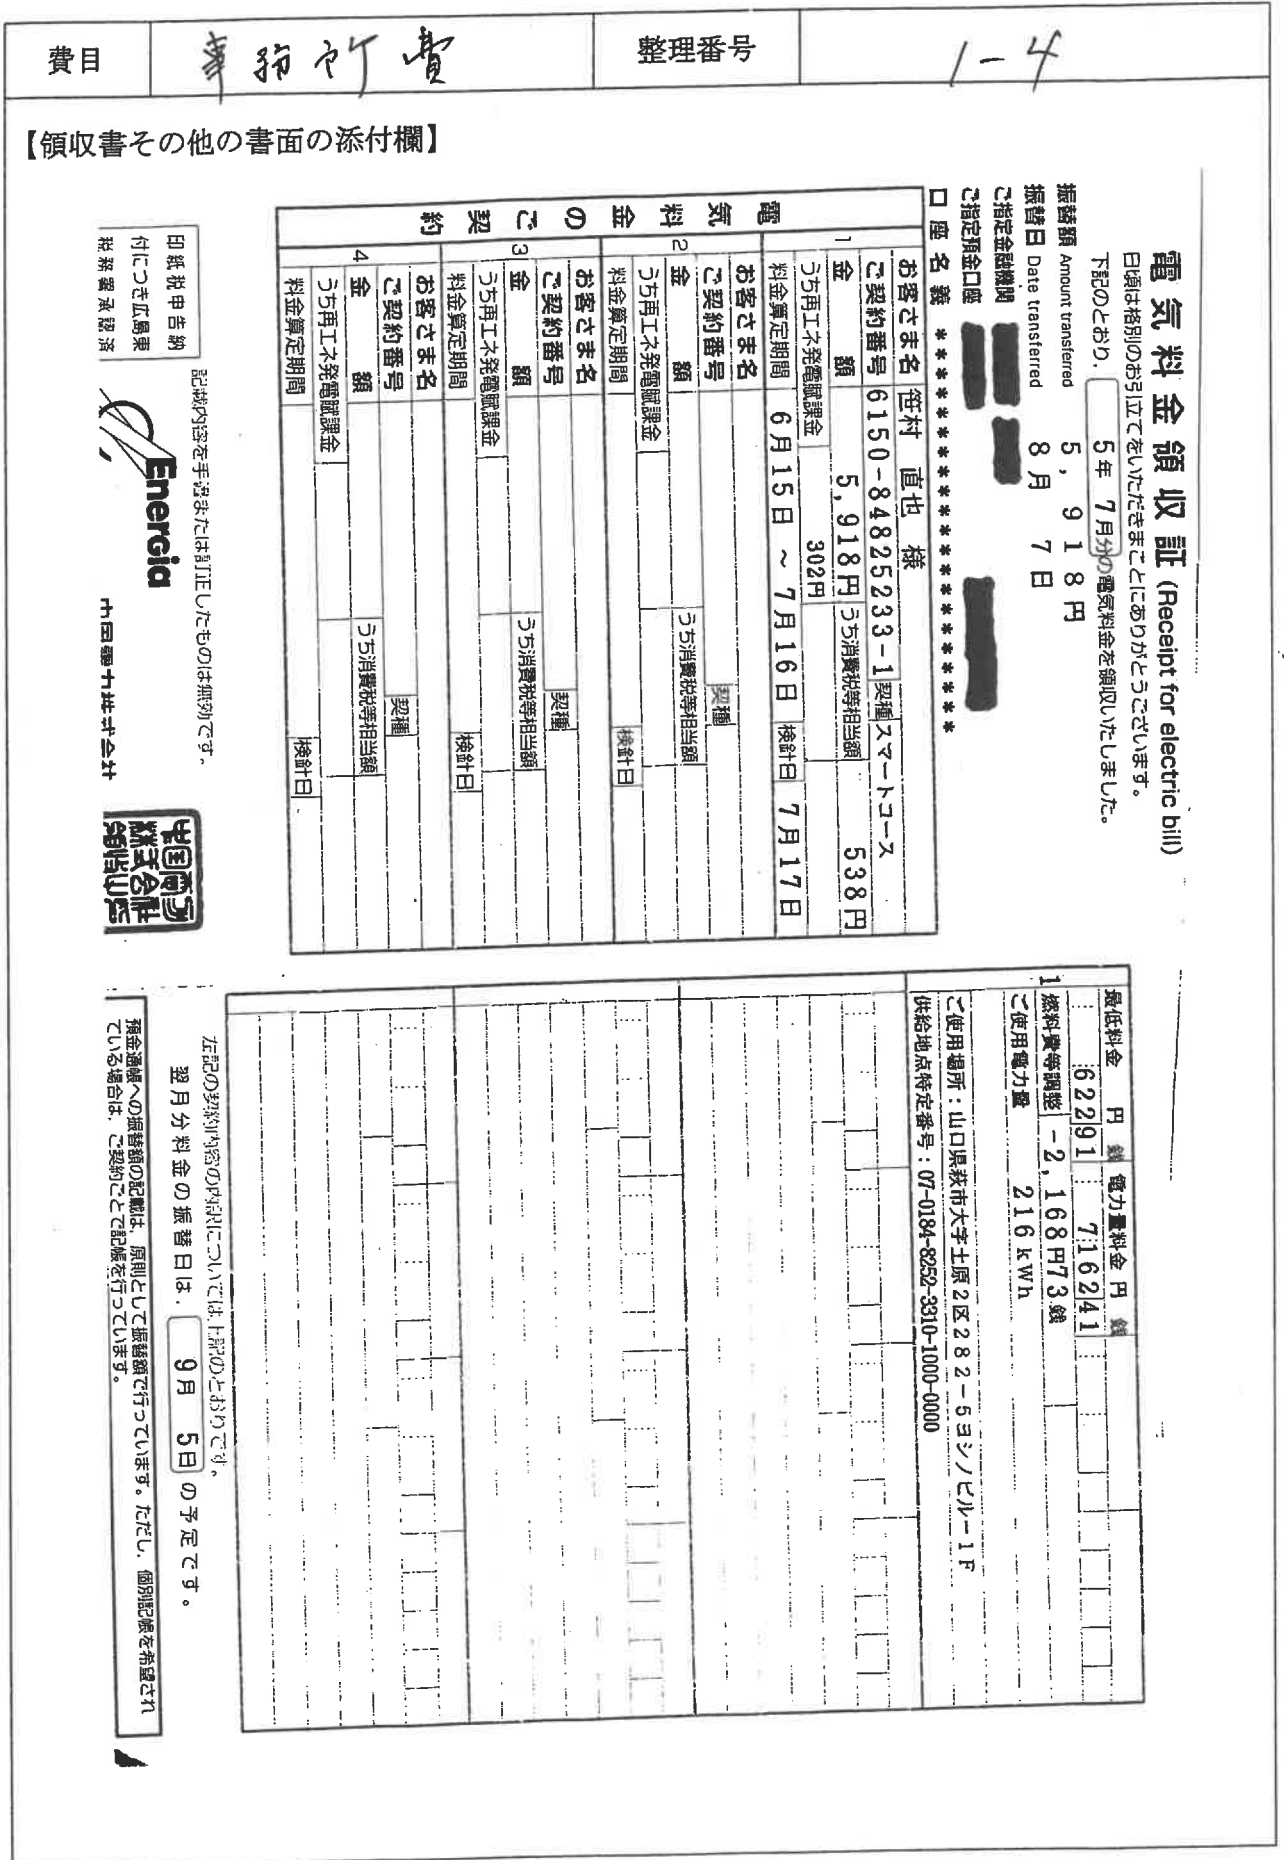 費目 事務所費 整理番号 1-4
【領収書その他の書面の添付欄】
電気料金領収証 (Receipt for electric bill)
日頃は格別のお引立てをいただきまことにありがとうございます。
下記のとおり、5年 7月分の電気料金を領収いたしました。
振替額 Amount transferred 5,918円
振替日 Date transferred 8月 7日
ご指定金融機関
ご指定預金口座
口座名義 ************************
電気料金のご契約
1
お客さま名 笹村 直也 様
ご契約番号 6150-84825233-1 契種 スマートコース
金額 5,918円 うち消費税等相当額 538円
うち再エネ発電賦課金 302円
料金算定期間 6月15日 ~ 7月16日 検針日 7月17日
2
お客さま名
ご契約番号 契種
金額 うち消費税等相当額
うち再エネ発電賦課金
料金算定期間 検針日
3
お客さま名
ご契約番号 契種
金額 うち消費税等相当額
うち再エネ発電賦課金
料金算定期間 検針日
4
お客さま名
ご契約番号 契種
金額 うち消費税等相当額
うち再エネ発電賦課金
料金算定期間 検針日
記載内容を手書または訂正したものは無効です。
印紙税申告納
付につき広島東
税務署承認済
Energia
中国電力株式会社
最低料金 円 銭 電力量料金 円 銭
622 91 7162 41
1 燃料費等調整 -2,168円73銭
ご使用電力量 216kWh
ご使用場所:山口県萩市大字土原2区282-5ヨシノビル-1F
供給地点特定番号:07-0184-8252-3310-1000-0000
左記の契約内容の内訳については上記のとおりです。
翌月分料金の振替日は、9月 5日の予定です。
預金通帳への振替額の記載は、原則として振替額で行っています。ただし、個別記帳を希望され
ている場合は、ご契約ごとで記帳を行っています。